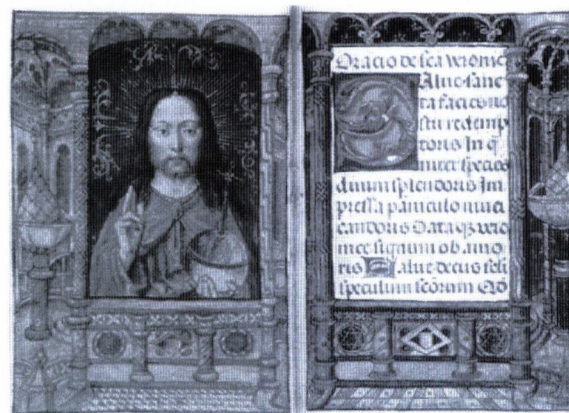 Oracio de sca veronic
Salve sanc
ta facies no
stri redemp
toris In q
nitet species
divini splendoris Im
pressa paniculo nivei
candoris Data qz vero
nice signum ob amo
ris Salve decus seli
speculum scorum Qd